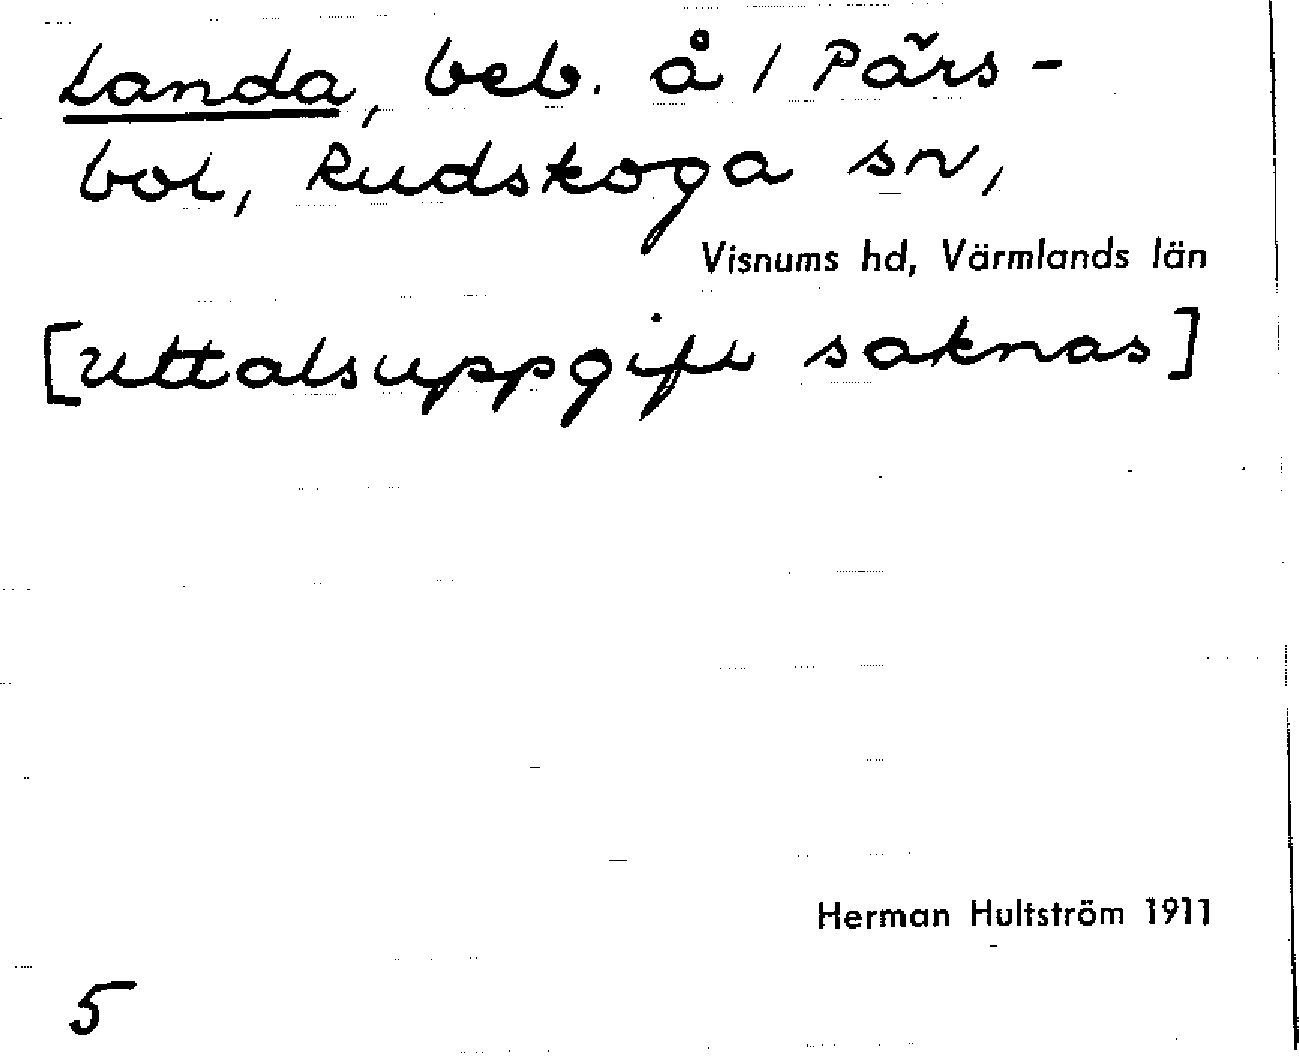 Landa, beb. å / Pärs-
bol, Rudskoga sn,
Visnums hd, Värmlands län
[Uttalsuppgift saknas]
Herman Hultström 1911
5